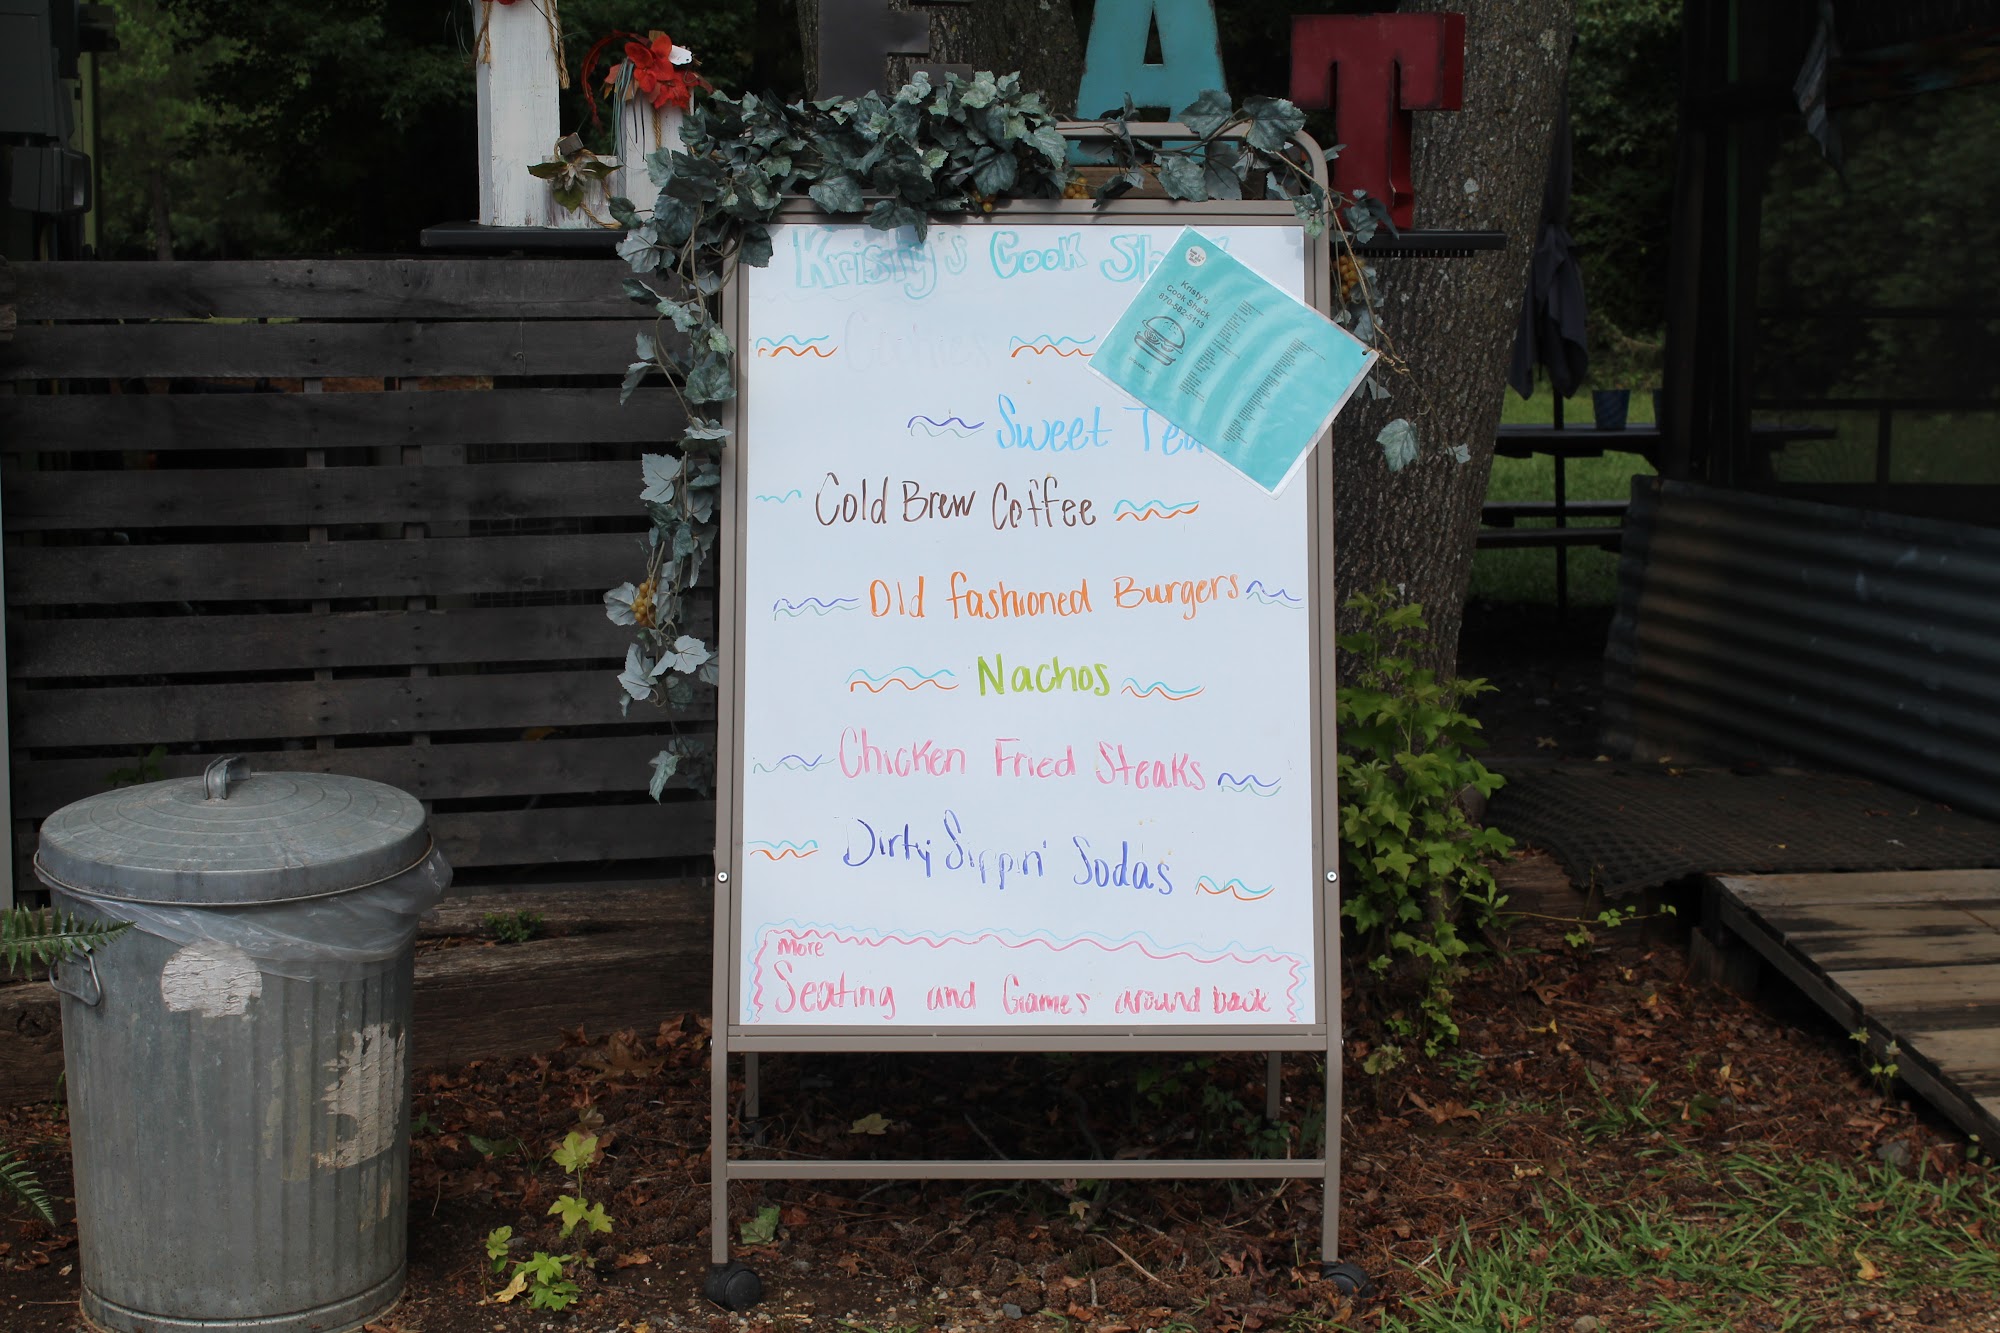 EAT
Kristy's Cook Sh
Cookies
Sweet Tea
Cold Brew Coffee
Old fashioned Burgers
Nachos
Chicken Fried Steaks
Dirty Sippin' Sodas
More
Seating and Games around back
Kristy's
Cook Shack
870-582-5113